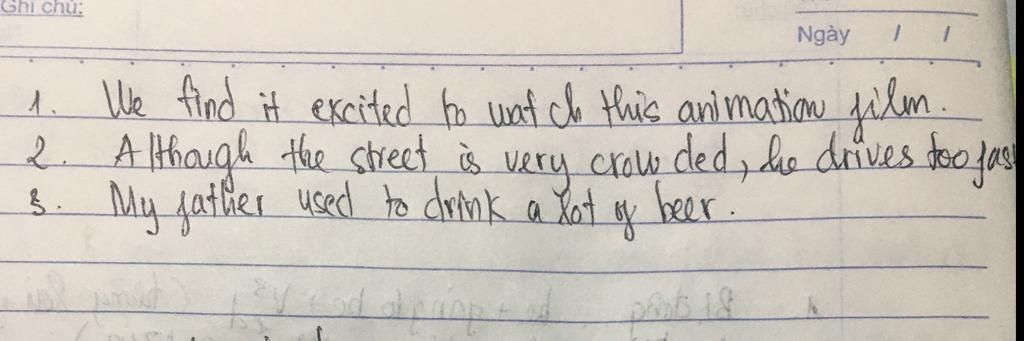 Ghi chú:
Ngày / /
1. We find it excited to watch this animation film.
2. Although the street is very crowded, he drives too fas
3. My father used to drink a lot of beer.